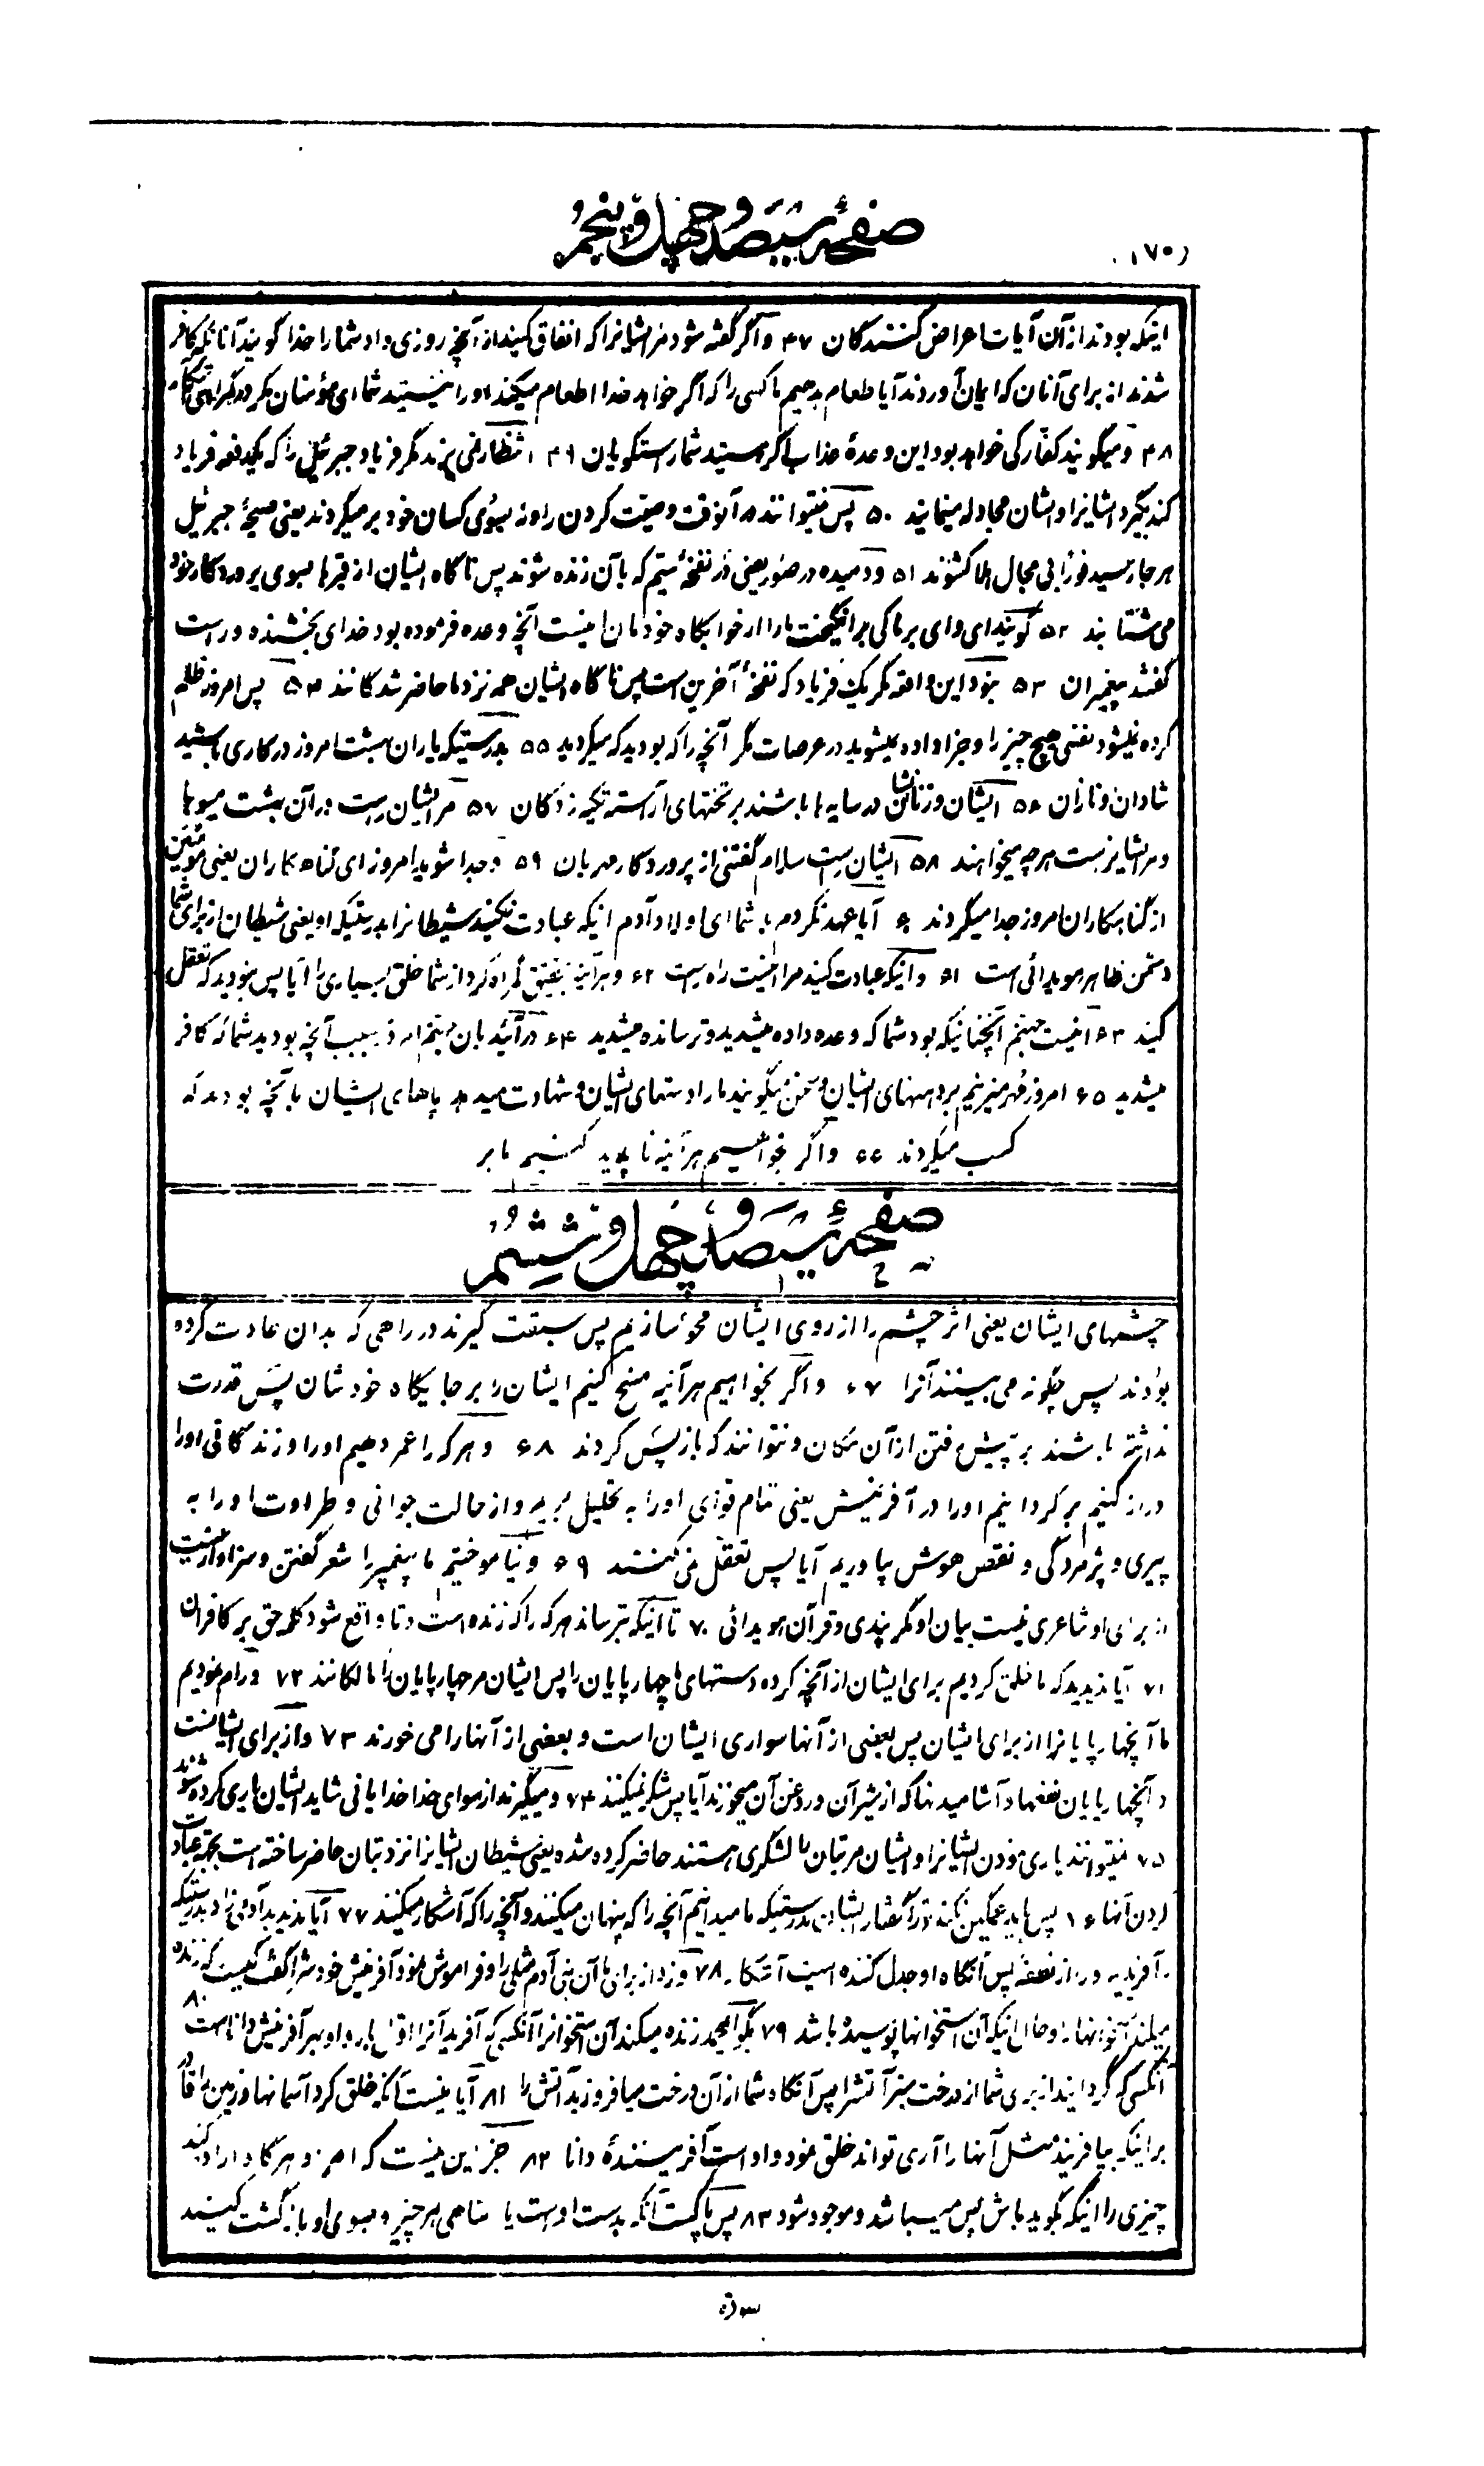 صفحهٔ سیصد و چهل و پنجم
(۱۷۵)
اینکه بودند از آن آیات اعراض کنندگان ۴۷ و اگر گفته شود مر ایشانرا که انفاق کنید از آنچه روزی داد شما را خدا گویند آنانکه کافر
شدند از برای آنان که ایمان آوردند آیا طعام بدهیم ما کسی را که اگر خواهد خدا اطعام میکند او را نیستید شما ای مؤمنان مگر در گمراهی آشکار
۴۸ و میگویند کفّار کی خواهد بود این وعدهٔ عذاب اگر هستید شما راستگویان ۴۹ انتظار نمی‌برند مگر فریاد جبرئیل را که یکدفعه فریاد
کند بگیرد ایشانرا و ایشان مجادله مینمایند ۵۰ پس نتوانند در آنوقت وصیت کردن را و نه بسوی کسان خود بر میگردند یعنی صیحهٔ جبرئیل
هر جا رسید فوراً بی مجال هلاک شوند ۵۱ و دمیده در صور یعنی در نفخهٔ سیّم که بآن زنده شوند پس ناگاه ایشان از قبرها بسوی پروردگار خود
می شتابند ۵۲ گویند ای وای بر ما کی برانگیخت ما را از خوابگاه خودمان اینست آنچه وعده فرموده بود خدای بخشنده و راست
گفتند پیغمبران ۵۳ نبود این واقعه مگر یک فریاد که نفخهٔ آخرین است پس ناگاه ایشان همه نزد ما حاضر شدگانند ۵۴ پس امروز ظلم
کرده نمیشود نفسی هیچ چیز را و جزا داده نمیشوید در عرصات مگر آنچه را که بودید که میکردید ۵۵ بدرستیکه یاران بهشت امروز در کاری باشند
شادان و نازان ۵۶ ایشان و زنانشان در سایه‌ها باشند بر تختهای آراسته تکیه زدگان ۵۷ مر ایشان راست در آن بهشت میوه‌ها
و مر ایشانراست هر چه میخواهند ۵۸ ایشان راست سلام گفتنی از پروردگار مهربان ۵۹ و جدا شوید امروز ای گناهکاران یعنی مؤمنین
از گناهکاران امروز جدا میگردند ۶۰ آیا عهد نکردم با شما ای اولاد آدم اینکه عبادت نکنید شیطانرا بدرستیکه او یعنی شیطان از برای شما
دشمن ظاهر هویدائی است ۶۱ و اینکه عبادت کنید مرا اینست راه راست ۶۲ و هر آینه بتحقیق گمراه کرد از شما خلق بسیاری را آیا پس نبودید که تعقل
کنید ۶۳ اینست جهنم آنچنانیکه بود شما که وعده داده میشدید و ترسانده میشدید ۶۴ در آئید بآن جهنم امروز بسبب آنچه بودید شما که کافر
میشدید ۶۵ امروز مهر میزنیم بر دهنهای ایشان و سخن میگویند ما را دستهای ایشان و شهادت میدهد پاهای ایشان بآنچه بودند که
کسب میکردند ۶۶ و اگر بخواهیم هر آینه ناپدید کنیم ما بر
صفحهٔ سیصد و چهل و ششم
چشمهای ایشان یعنی اثر چشم را از روی ایشان محو سازیم پس سبقت گیرند در راهی که بدان عادت کرده
بودند پس چگونه می بینند آنرا ۶۷ و اگر بخواهیم هر آینه مسخ کنیم ایشان را بر جایگاه خودشان پس قدرت
نداشته باشند بر پیش رفتن از آن مکان و نتوانند که بازپس گردند ۶۸ و هر که را عمر دهیم او را و زندگانی او را
دراز کنیم برگردانیم او را در آفرینش یعنی تمام قوای او را به تحلیل بریم و از حالت جوانی و طراوت او را به
پیری و پژمردگی و نقص هوش بیاوریم آیا پس تعقل نمی کنند ۶۹ و نیاموختیم ما پیغمبر را شعر گفتن و سزاوار نیست
از برای او شاعری نیست بیان او مگر پندی و قرآن هویدائی ۷۰ تا اینکه بترساند هر که را که زنده است و تا واقع شود کلمه حق بر کافران
۷۱ آیا ندیدید که ما خلق کردیم برای ایشان از آنچه کرده دستهای ما چهارپایان را پس ایشان مر چهارپایان را مالکانند ۷۲ و رام نمودیم
ما آنچهارپایانرا از برای ایشان پس بعضی از آنها سواری ایشان است و بعضی از آنها را می خورند ۷۳ و از برای ایشانست
در آنچهارپایان نفعها و آشامیدنها که از شیر آن و روغن آن میخورند آیا پس شکر نمیکنند ۷۴ و میگیرند از سوای خدا خدایانی شاید ایشان یاری کرده شوند
۷۵ نمیتوانند یاری نمودن ایشانرا و ایشان مر بتان را لشگری هستند حاضر کرده شده یعنی شیطان ایشانرا نزد بتان حاضر ساخته است بجهة عبادت
کردن آنها ۷۶ پس باید غمگین نکند ترا گفتار ایشان بدرستیکه ما میدانیم آنچه را که پنهان میکنند و آنچه را که آشکار میکنند ۷۷ آیا ندیدید آدمیزاد بدرستیکه
آفریدیم او را از نطفه پس آنگاه او جدل کننده ایست آشکار ۷۸ و زد از برای ما آن بنی آدم مثلی را و فراموش نمود آفرینش خودش را گفت کیست که زنده
میکند استخوانها را و حال اینکه آن استخوانها پوسیده باشد ۷۹ بگو ای محمد زنده میکند آن استخوانرا آنکسی که آفرید آنرا اول بار و او بهر آفرینش داناست ۸۰
آنکسی که گردانید از برای شما از درخت سبز آتشرا پس آنگاه شما از آن درخت میافروزید آتش را ۸۱ آیا نیست آنکه خلق کرد آسمانها و زمین را قادر
بر اینکه بیافریند مثل آنها را آری تواند خلق نمود و او است آفرینندهٔ دانا ۸۲ جز این نیست که امر او هر گاه اراده کند
چیزی را اینکه بگوید باش پس میباشد و موجود شود ۸۳ پس پاکست آنکه بدست اوست پادشاهی هر چیز و بسوی او بازگشت کنید
سورة